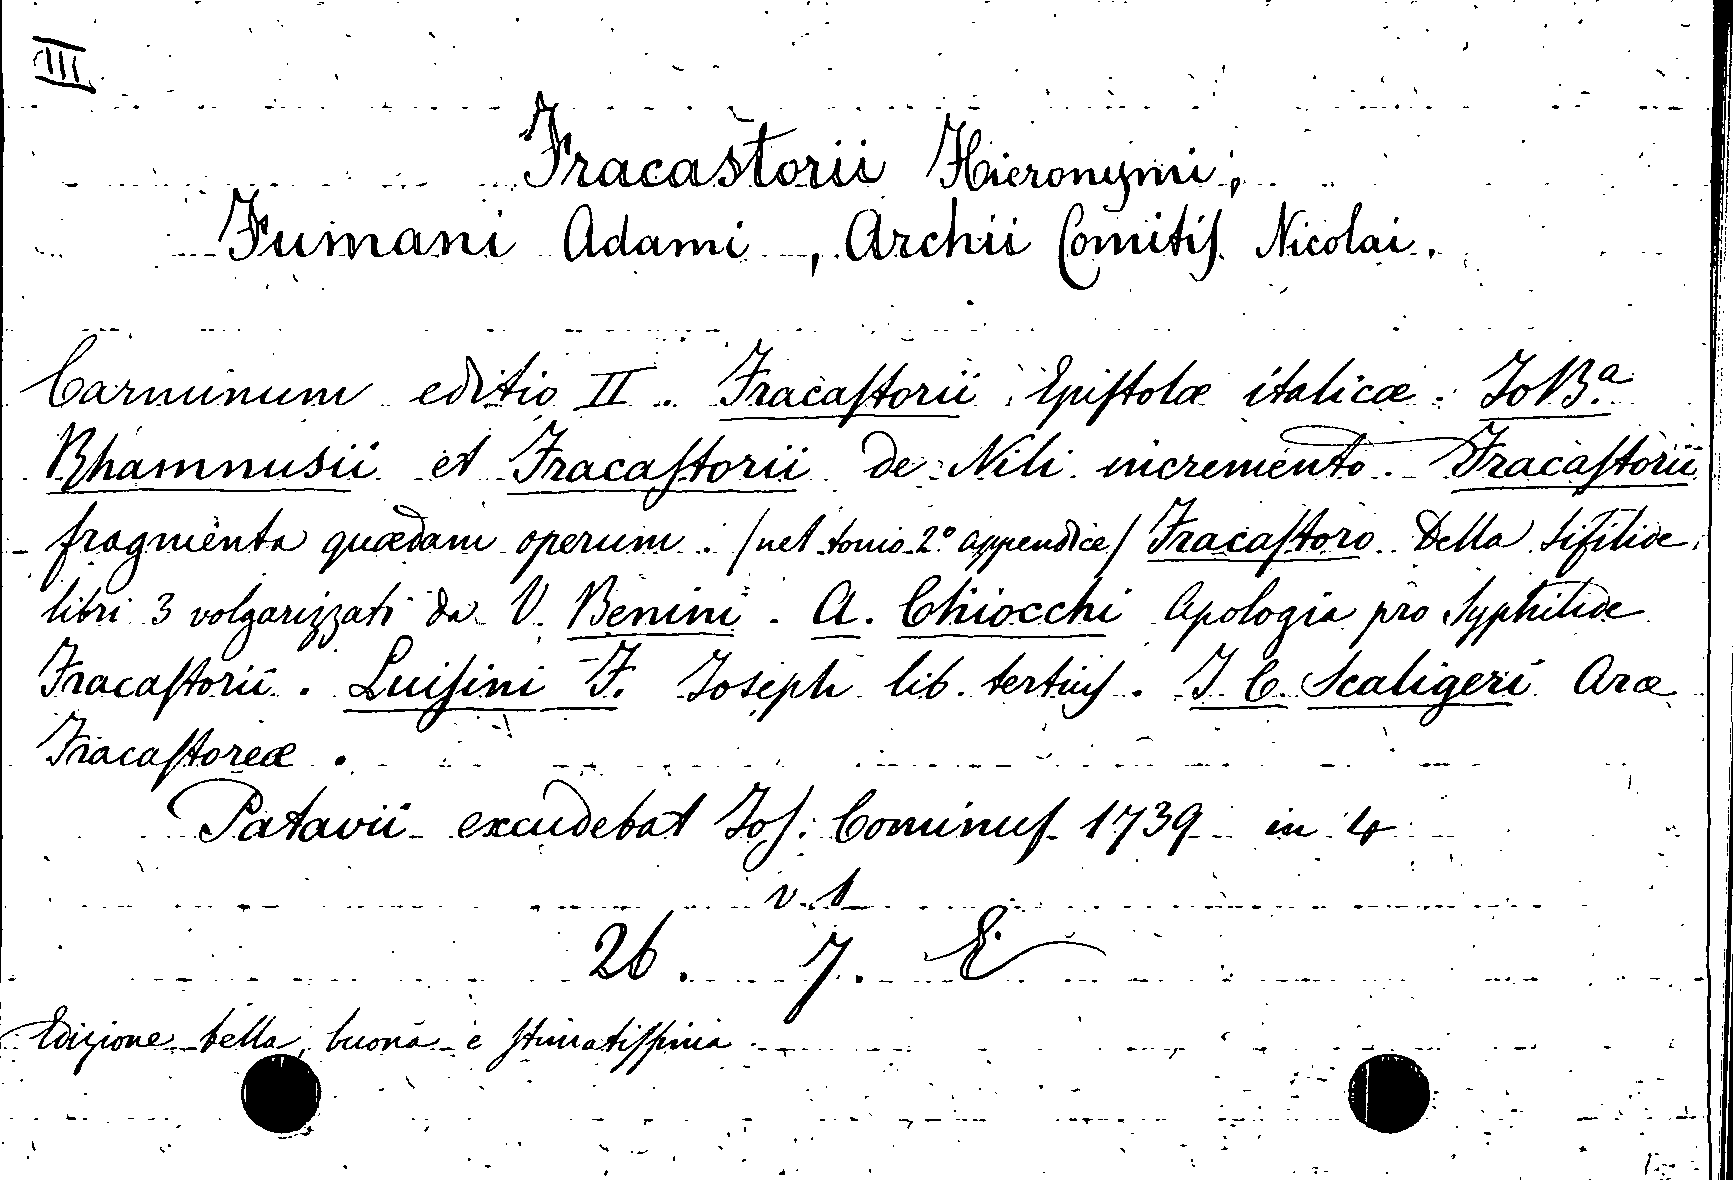 III
Fracastorii Hieronymi,
Fumani Adami, Archii Comitis Nicolai.
Carminum editio II. Fracastorii Epistolæ italicæ. Jo Bª
Rhamnusii et Fracastorii de Nili incremento. Fracastorii
fragmenta quædam operum. /nel tomo 2º appendice/ Fracastoro Della Sifilide
libri 3 volgarizzati da V. Benini. A. Chiocchi Apologia pro Syphilide
Fracastorii. Luisini F. Joseph lib. tertius. J. C. Scaligeri Aræ
Fracastoreæ.
Patavii excudebat Jos. Cominus 1739 in 4
v. 1
26. 7. E
Edizione bella, buona e stimatissima